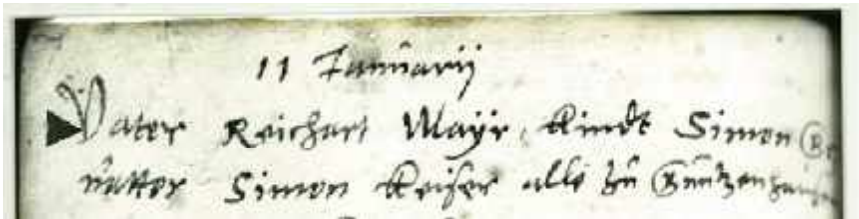 11 Januarij
Vater Reichart Mayr, Kindt Simon Ge
uatter Simon Keiser alls zu Güntzenhausen